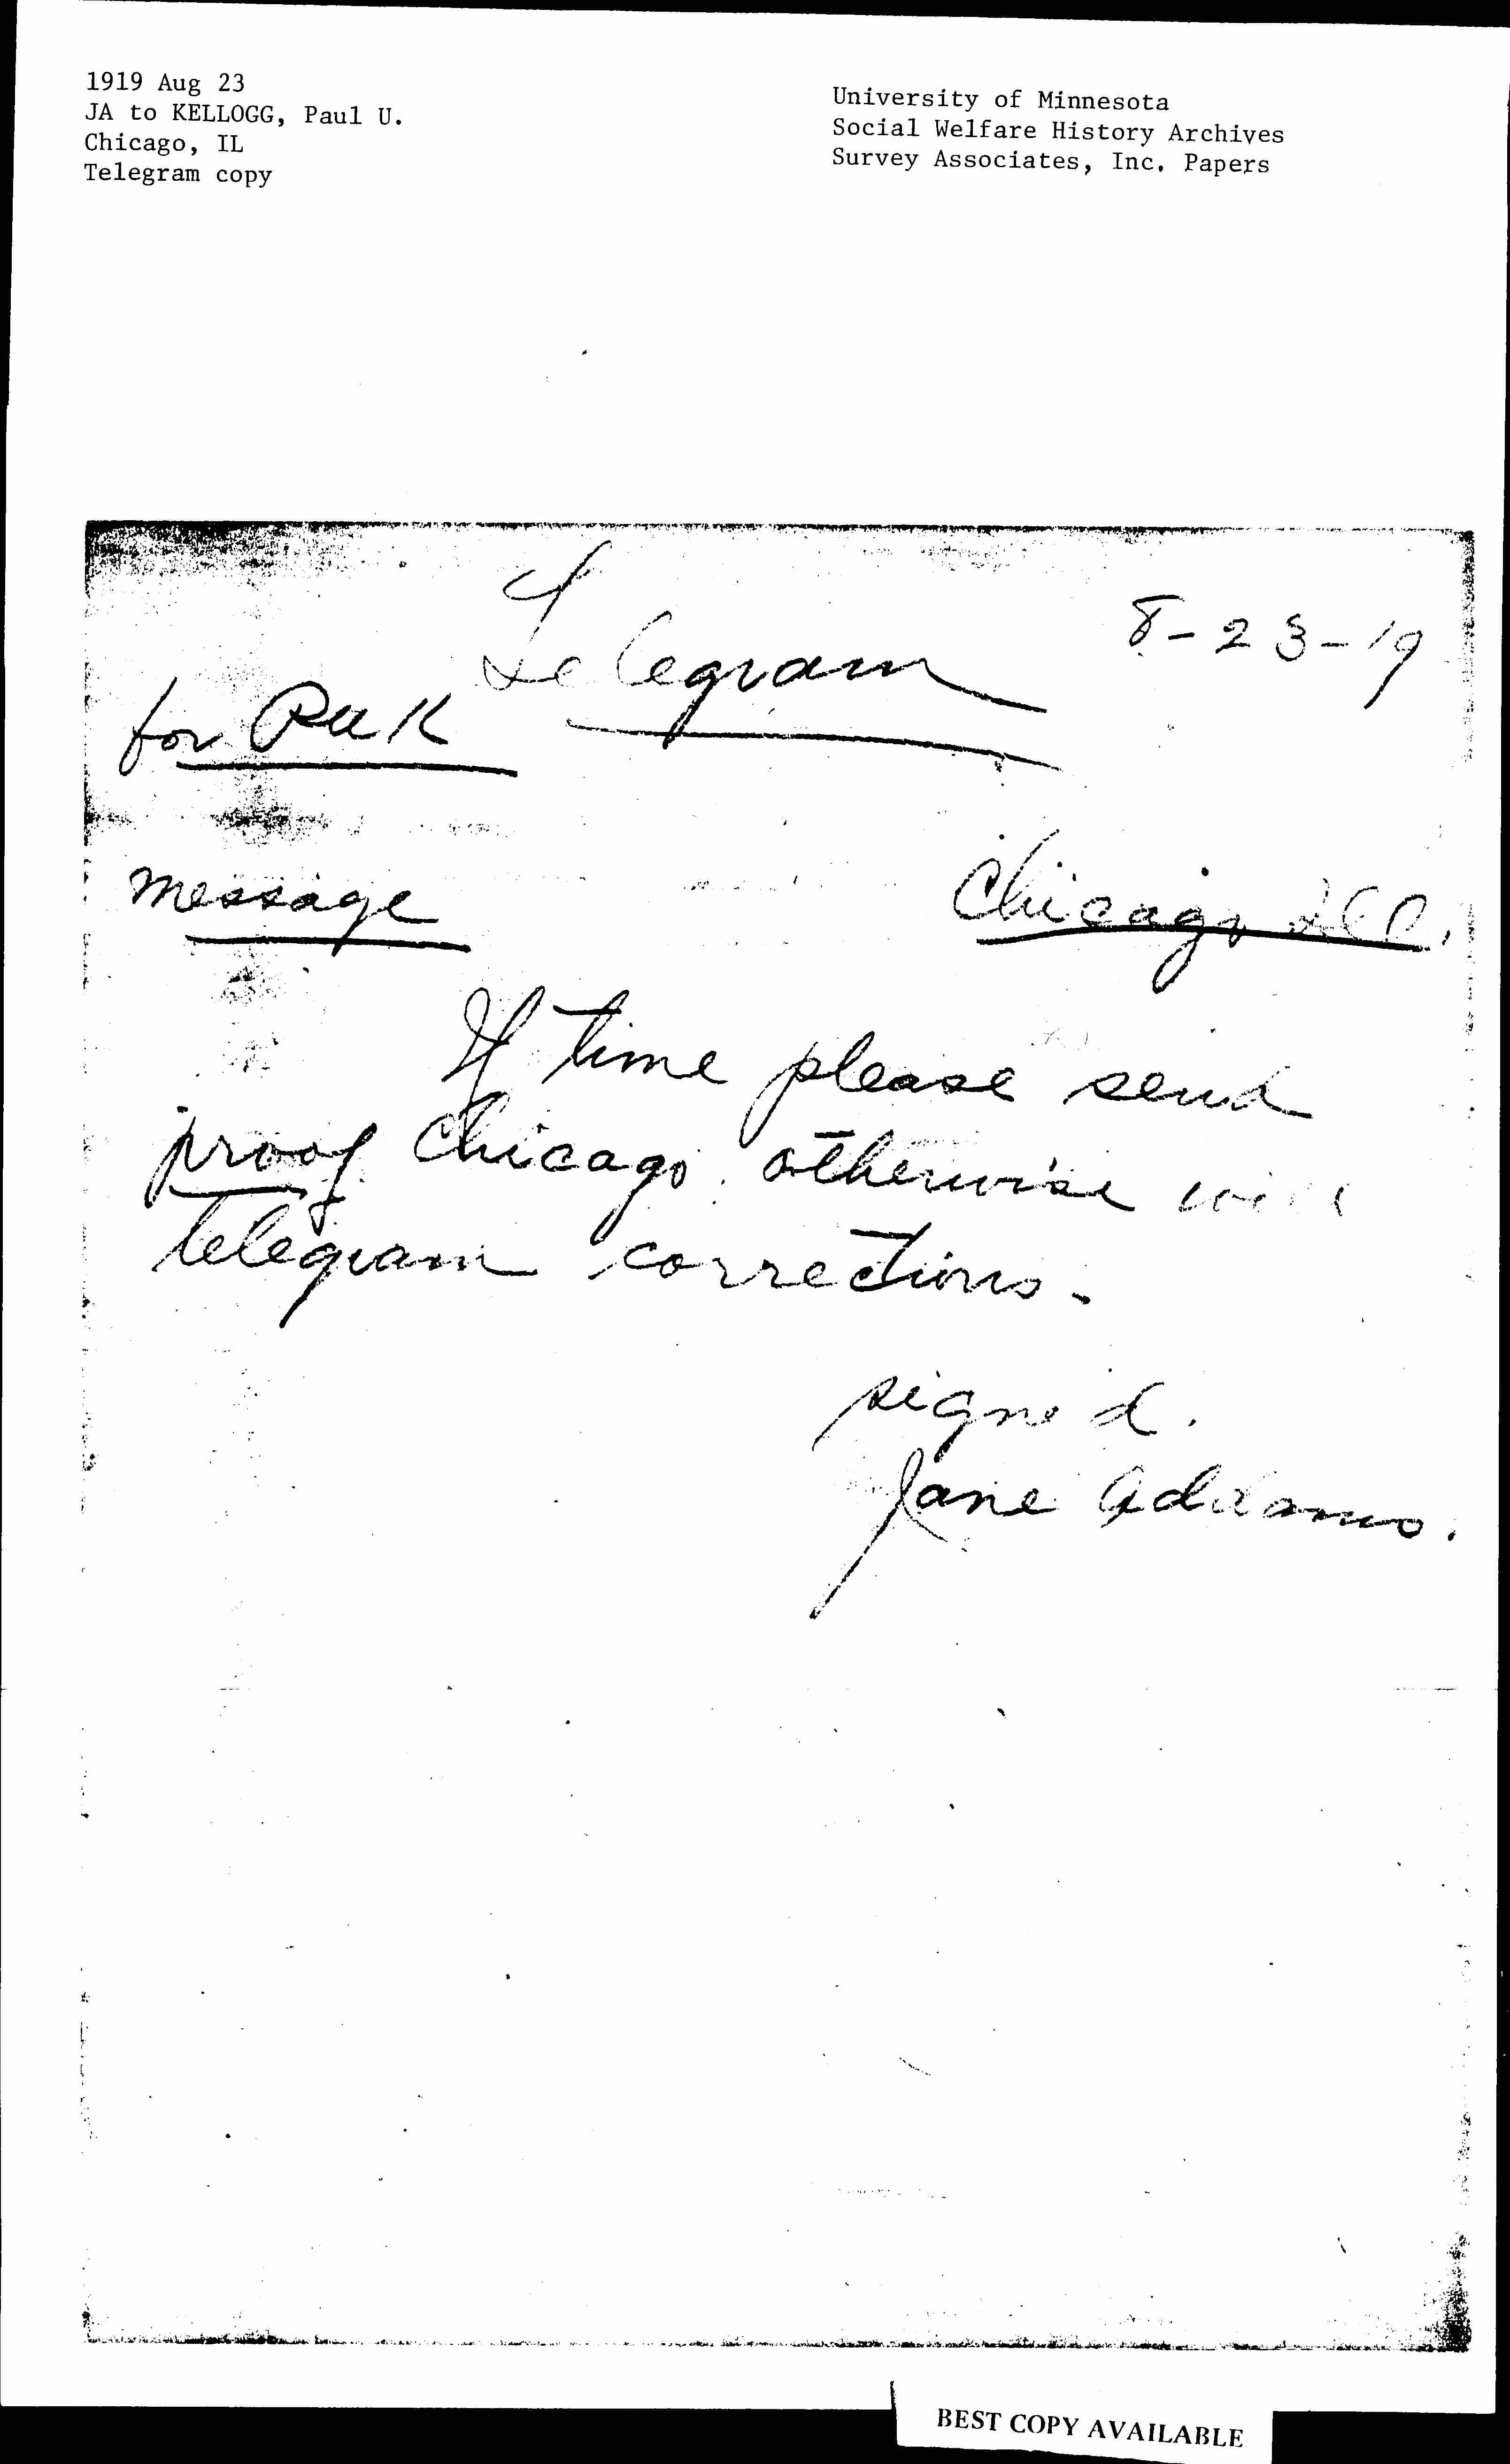 1919 Aug 23
JA to KELLOGG, Paul U.
Chicago, IL
Telegram copy
University of Minnesota
Social Welfare History Archives
Survey Associates, Inc. Papers
Telegram
8-23-19
for PUK
Message
Chicago Ill.
If time please send
proof Chicago. otherwise will
telegram corrections.
signed.
Jane Addams.
BEST COPY AVAILABLE